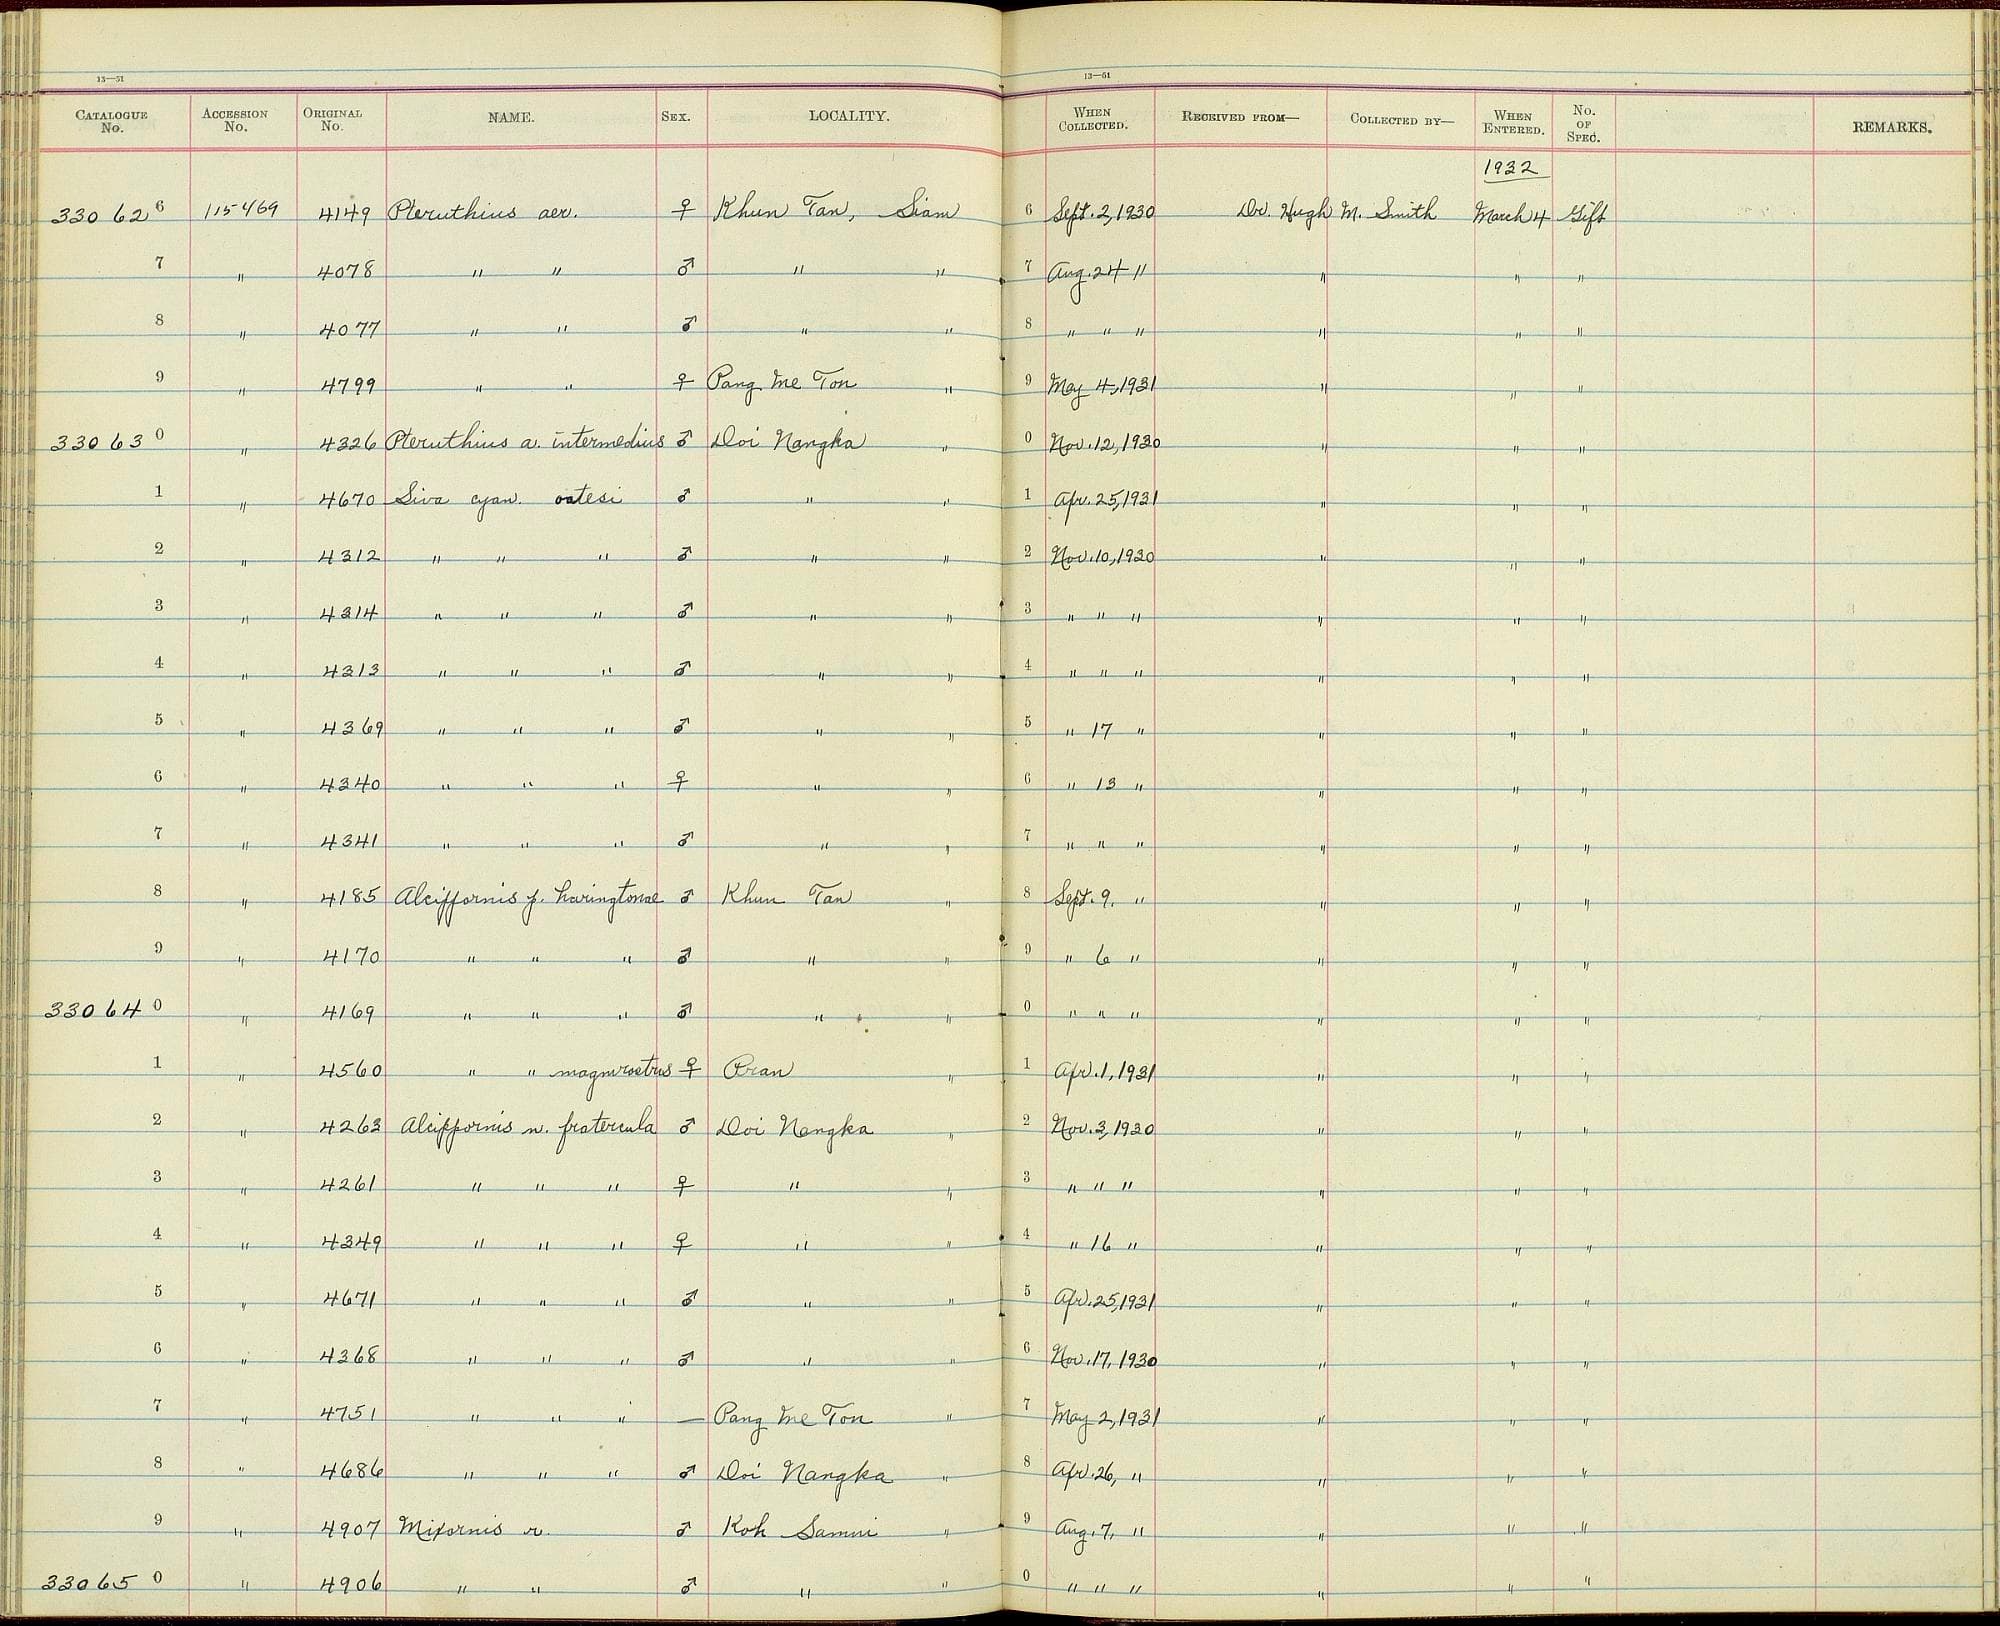 13—51 13—51
CATALOGUE No. ACCESSION No. ORIGINAL No. NAME. SEX. LOCALITY. WHEN COLLECTED. RECEIVED FROM— COLLECTED BY— WHEN ENTERED. No. OF SPEC. REMARKS.
1932
33062 6 115469 4149 Pteruthius aer. ♀ Khun Tan, Siam 6 Sept. 2, 1930 Dr. Hugh M. Smith March 4 Gift
7 " 4078 " " ♂ " " 7 Aug. 24 " " " "
8 " 4077 " " ♂ " " 8 " " " " " "
9 " 4799 " " ♀ Pang Me Ton " 9 May 4, 1931 " " "
33063 0 " 4326 Pteruthius a. intermedius ♂ Doi Nangka " 0 Nov. 12, 1930 " " "
1 " 4670 Siva cyan. oatesi ♂ " " 1 Apr. 25, 1931 " " "
2 " 4312 " " " ♂ " " 2 Nov. 10, 1930 " " "
3 " 4314 " " " ♂ " " 3 " " " " " "
4 " 4313 " " " ♂ " " 4 " " " " " "
5 " 4369 " " " ♂ " " 5 " 17 " " " "
6 " 4340 " " " ♀ " " 6 " 13 " " " "
7 " 4341 " " " ♂ " " 7 " " " " " "
8 " 4185 Alcippornis p. haringtonae ♂ Khun Tan " 8 Sept. 9, " " " "
9 " 4170 " " " ♂ " " 9 " 6 " " " "
33064 0 " 4169 " " " ♂ " " 0 " " " " " "
1 " 4560 " " magnirostris ♀ Pran " 1 Apr. 1, 1931 " " "
2 " 4263 Alcippornis n. fratercula ♂ Doi Nangka " 2 Nov. 3, 1930 " " "
3 " 4261 " " " ♀ " " 3 " " " " " "
4 " 4349 " " " ♀ " " 4 " 16 " " " "
5 " 4671 " " " ♂ " " 5 Apr. 25, 1931 " " "
6 " 4368 " " " ♂ " " 6 Nov. 17, 1930 " " "
7 " 4751 " " " — Pang Me Ton " 7 May 2, 1931 " " "
8 " 4686 " " " ♂ Doi Nangka " 8 Apr. 26, " " " "
9 " 4907 Mixornis r. ♂ Koh Samui " 9 Aug. 7, " " " "
33065 0 " 4906 " " ♂ " " 0 " " " " " "